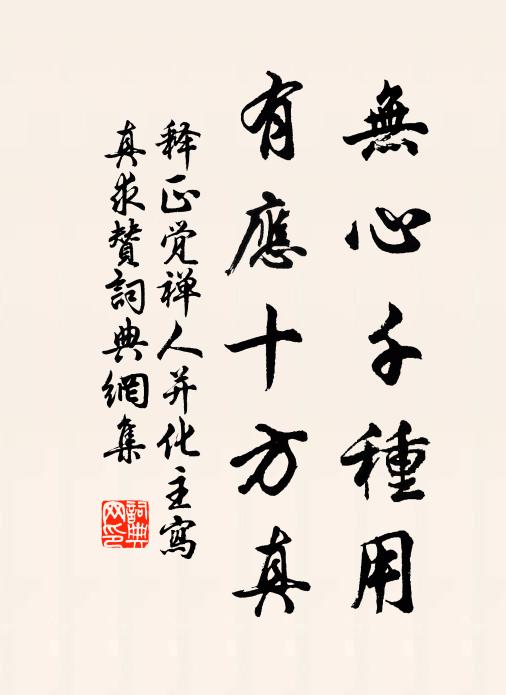 無心千種用
有應十方真
释正觉禅人并化主寫
真求贊詞典網集
詞典网印